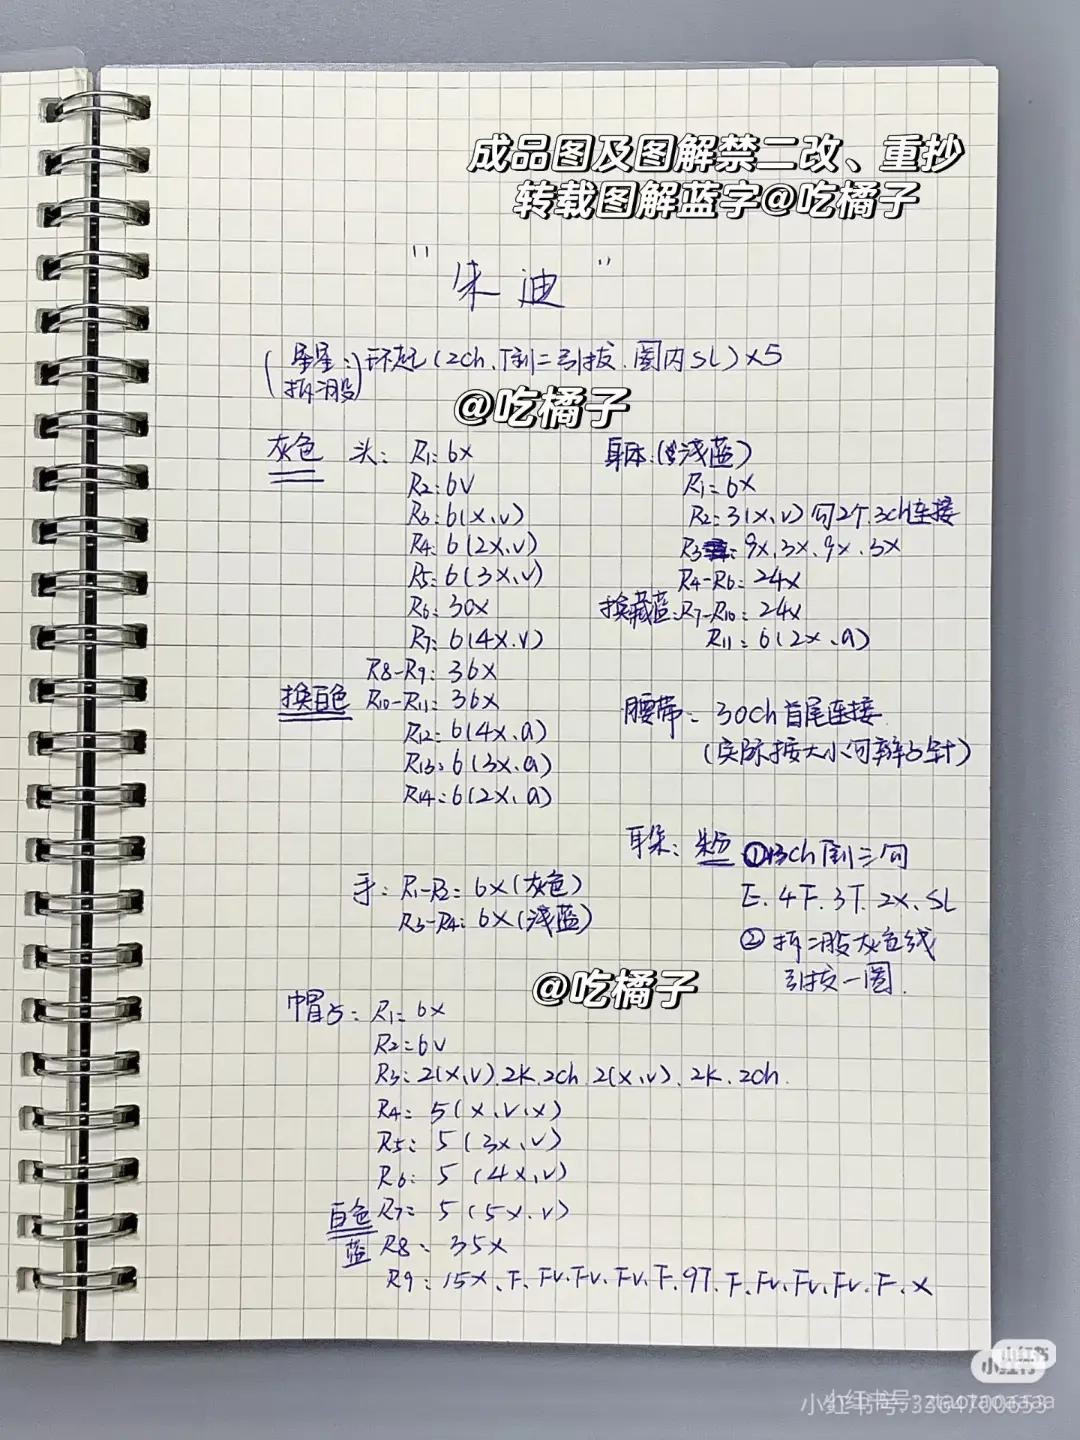 成品图及图解禁二改、重抄
转载图解蓝字@吃橘子
"朱迪"
(星星:拆2股) 环起(2ch、T倒二引拔.圈内SL)×5
@吃橘子
灰色 头: R1: 6X
R2: 6V
R3: 6(X,V)
R4: 6(2X,V)
R5: 6(3X,V)
R6: 30X
R7: 6(4X.V)
R8-R9: 36X
换白色 R10-R11: 36X
R12: 6(4X.A)
R13: 6(3X.A)
R14: 6(2X,A)
身体:(浅蓝)
R1=6X
R2: 3(X,V) 勾2个.3ch连接
R3: 9X.3X.9X.3X
R4-R6: 24X
换藏蓝:R7-R10: 24X
R11: 6(2X.A)
腰带: 30ch首尾连接.
(实际按大小勾辫子针)
耳朵: 粉 ①13ch倒三勾
E.4F.3T.2X.SL
② 拆2股灰色线
引拔一圈.
手: R1-R2= 6X(灰色)
R3-R4: 6X(浅蓝)
@吃橘子
帽子: R1= 6X
R2=6V
R3: 2(X,V).2K.2ch.2(X,V).2K.2ch.
R4: 5(X.V.X)
R5: 5(3X.V)
R6: 5(4X,V)
白色 R7= 5(5X.V)
蓝 R8: 35X
R9: 15X.F.FV.FV.FV.F.9T.F.FV.FV.FV.F.X
小红书
小红书号: